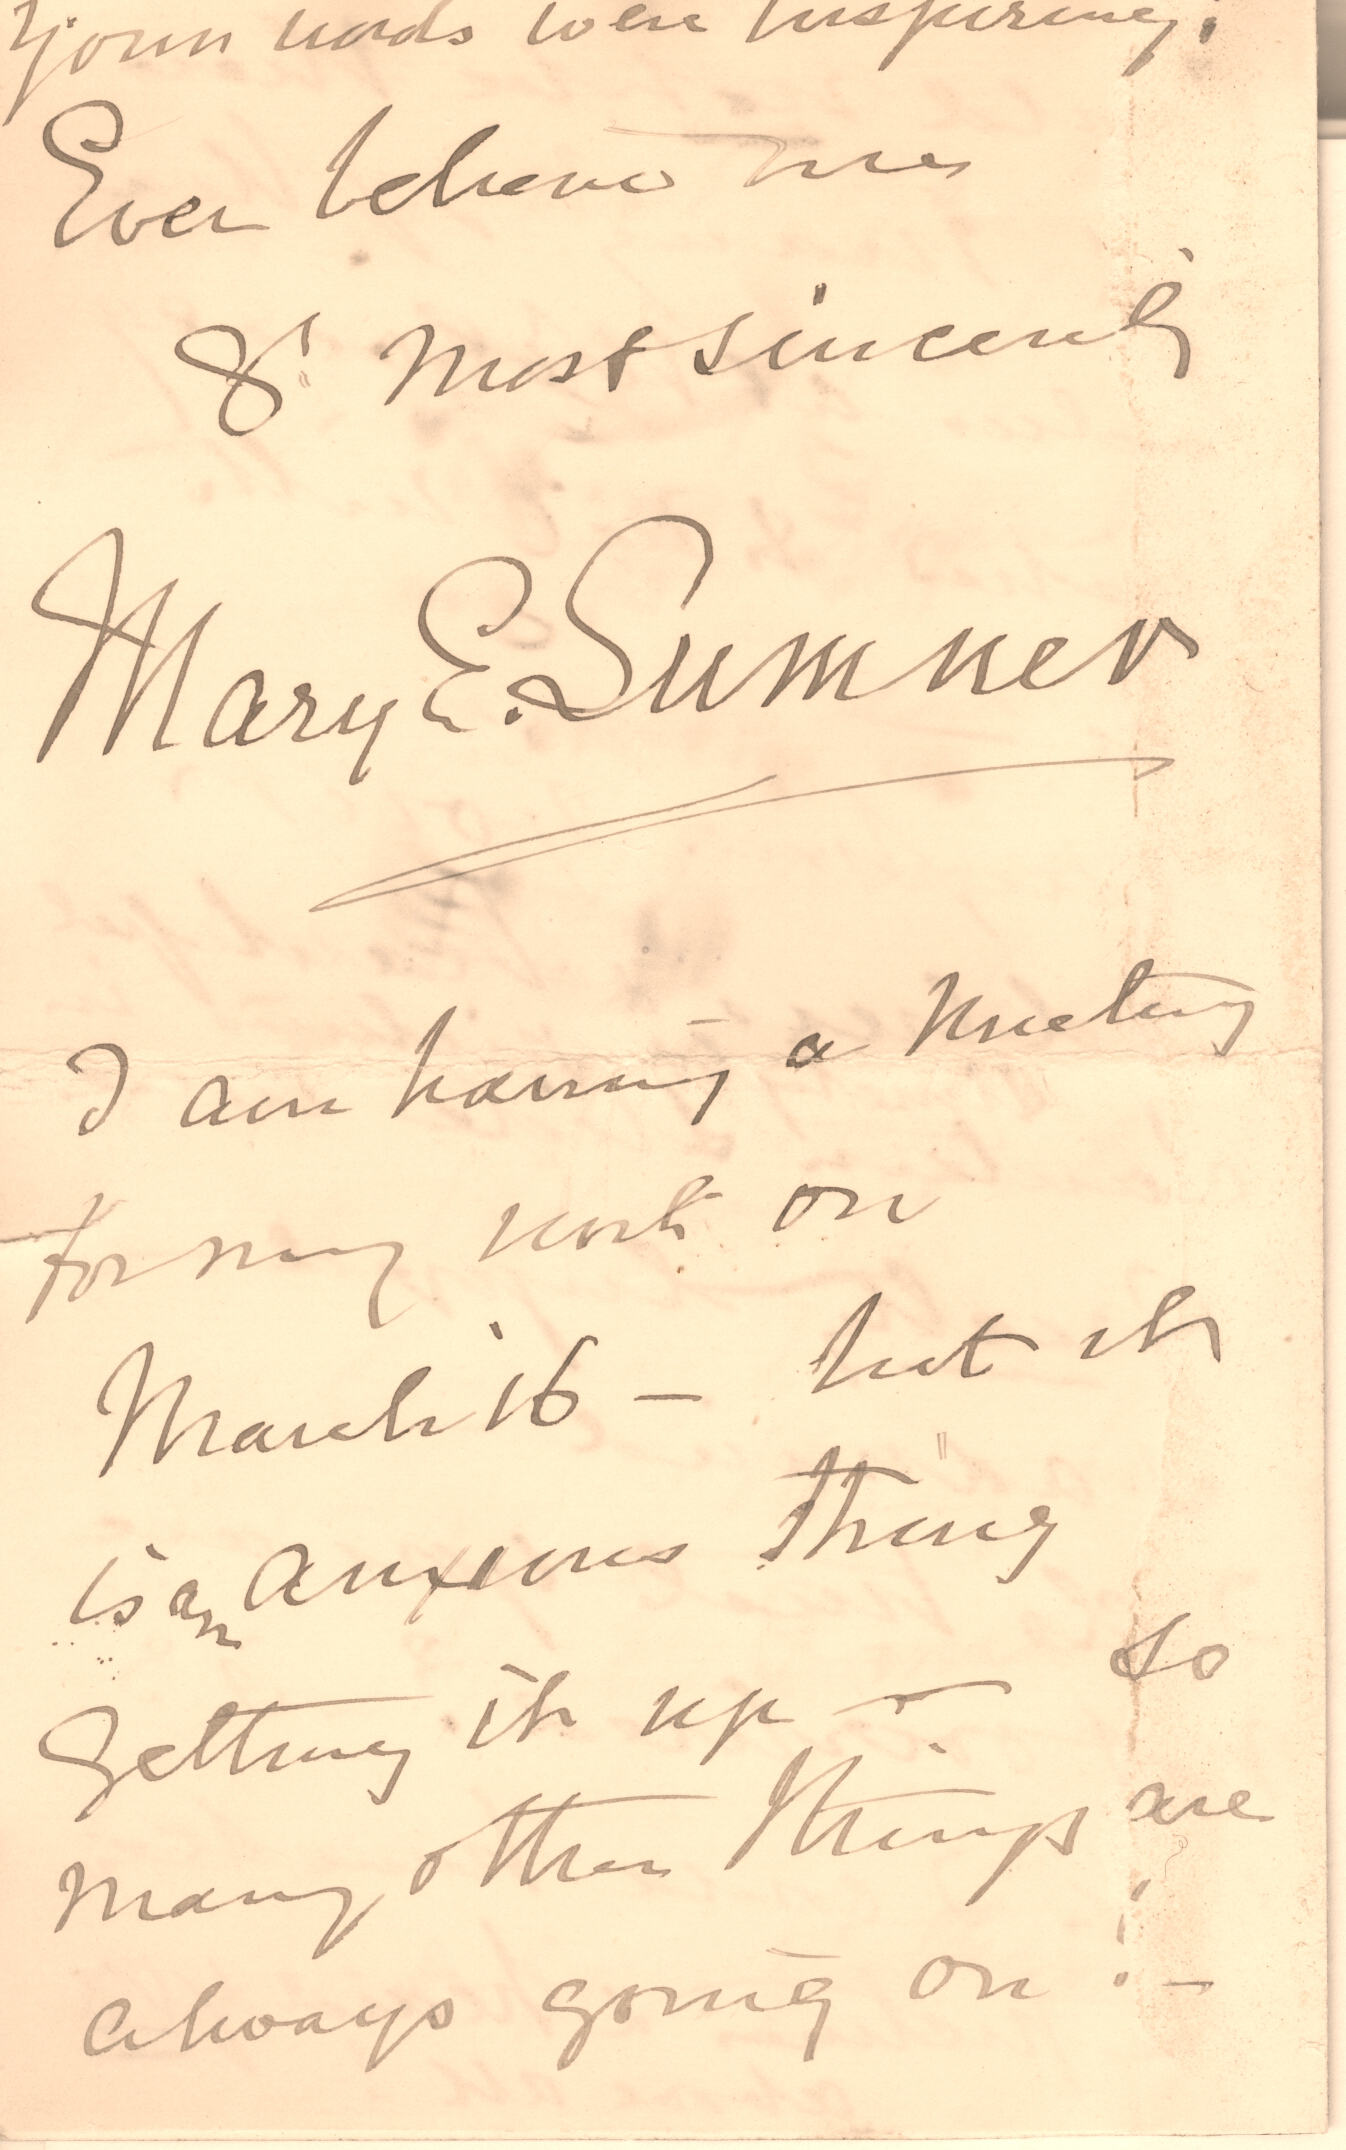 Your words were inspiring.
Ever believe me
Yr most sincerely
Mary E. Sumner
I am having a meeting
for my work on
March 16 — but it
is an anxious thing
getting it up — so
many other things are
always going on! —